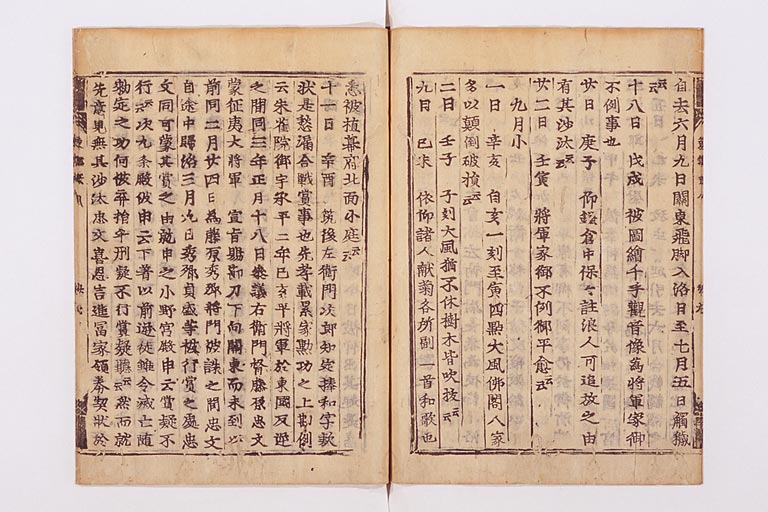 自去六月九日關東飛脚入洛日至七月五日觸穢
云云
十八日 戊戌 被圖繪千手觀音像爲將軍家御
不例事也
廿日 庚子 仰鎌倉中保々註浪人可追放之由
有其沙汰云云
廿二日 壬寅 將軍家御不例御平愈云云
九月小
一日 辛亥 自亥一刻至寅四點大風佛閣人家
多以顛倒破損云云
二日 壬子 子刻大風猶不休樹木皆吹拔云云
九日 己未 依仰諸人献菊各所副一首和歌也
悉被植幕府北面小庭云云
十一日 辛酉 筑後左衛門次郎知定捧和字款
狀是愁漏合戰賞事也先考載累家勲功之上勘例
云朱雀院御宇承平二年己亥平將軍於東國反逆
之間同三年正月十八日參議右衛門督藤原忠文
蒙征夷大將軍 宣旨賜節刀下向關東而未到以
前同二月廿四日爲藤原秀郷將門被誅之間忠文
自途中歸洛三月九日秀郷貞盛等被行賞之處忠
文同可蒙其賞之由就申之小野宮殿申云賞疑不
行云云次九条殿被申云下著以前逆徒雖令滅亡随
勅定之功何被弃捐乎刑疑不行賞疑聽云云然而就
先意見無其沙汰忠文喜恩言進冨家領券契狀於